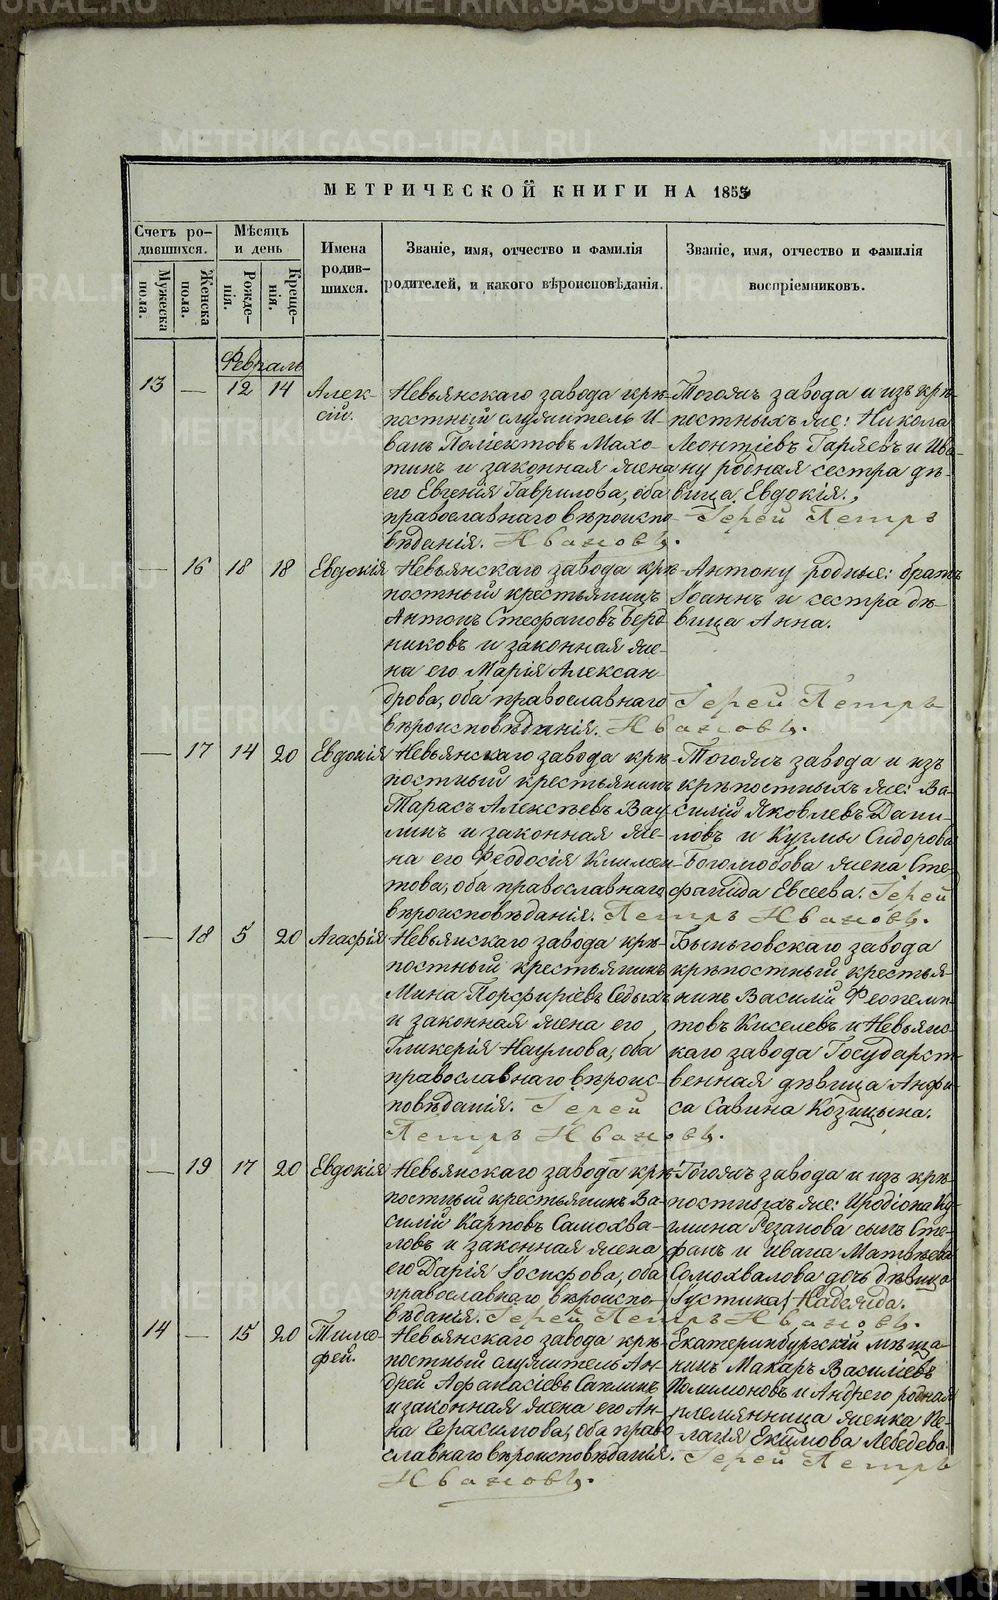 МЕТРИЧЕСКОЙ КНИГИ НА 1853
Счетъ ро-
дившихся.
Мужеска
пола.
Женска
пола.
Мѣсяцъ
и день
Рожде-
нія.
Креще-
нія.
Имена
родив-
шихся.
Званіе, имя, отчество и фамилія
родителей, и какого вѣроисповѣданія.
Званіе, имя, отчество и фамилія
воспріемниковъ.
Февраль
13 — 12 14 Алек-
сій.
Невьянскаго завода крѣ-
постный служитель И-
ванъ Поліектовъ Махо-
тинъ и законная жена
его Евгенія Гаврилова, оба
православнаго вѣроиспо-
вѣданія.
Тогожъ завода и изъ крѣ-
постныхъ же: Никола
Леонтіевъ Гаряевъ и Ива-
ну родная сестра дѣ-
вица Евдокія.
Іерей Петръ
Ивановъ.
— 16 18 18 Евдокія
Невьянскаго завода крѣ-
постный крестьянинъ
Антонъ Стефановъ Берд
никовъ и законная же-
на его Марія Алексан-
дрова, оба православнаго
вѣроисповѣданія.
Антону родные: братъ
Іоаннъ и сестра дѣ-
вица Анна.
Іерей Петръ
Ивановъ.
— 17 14 20 Евдокія
Невьянскаго завода крѣ-
постный крестьянинъ
Тарасъ Алексѣевъ Вау-
линъ и законная же-
на его Феодосія Климен-
това, оба православнаго
вѣроисповѣданія.
Тогожъ завода и изъ
крѣпостныхъ же: Ва-
силій Яковлевъ Дани-
ловъ и Кузмы Сидорова
Боголюбова жена Сте-
фанида Евсеева. Іерей
Петръ Ивановъ.
— 18 5 20 Агафія
Невьянскаго завода крѣ-
постный крестьянинъ
Мина Порфиріевъ Седыхъ
и законная жена его
Гликерія Наумова, оба
православнаго вѣроис-
повѣданія.
Быньговскаго завода
крѣпостный крестья-
нинъ Василій Феопемп-
товъ Киселевъ и Невьянс-
каго завода Государст-
венная дѣвица Анфи-
са Савина Козицына.
Іерей
Петръ Ивановъ.
— 19 17 20 Евдокія
Невьянскаго завода крѣ-
постный крестьянинъ Ва-
силій Карповъ Самохва-
ловъ и законная жена
его Дарія Іосифова, оба
православнаго вѣроиспо-
вѣданія.
Тогожъ завода и изъ крѣ-
постныхъ же: Иродіона Ку-
смина Резанова сынъ Сте-
фанъ и Ивана Матвѣева
Самохвалова дочь дѣвица
Надежда.
Іерей Петръ Ивановъ.
14 — 15 20 Тимо-
фей.
Невьянскаго завода крѣ-
постный служитель Ан-
дрей Афанасіевъ Саплинъ
и законная жена его Ан-
на Герасимова, оба право
славнаго вѣроисповѣданія.
Екатеринбургскій мѣща-
нинъ Макаръ Василіевъ
Филимоновъ и Андрею родная
племянница женка Пе-
лагія Екимова Лебедева.
Іерей Петръ
Ивановъ.
METRIKI.GASO-URAL.RU